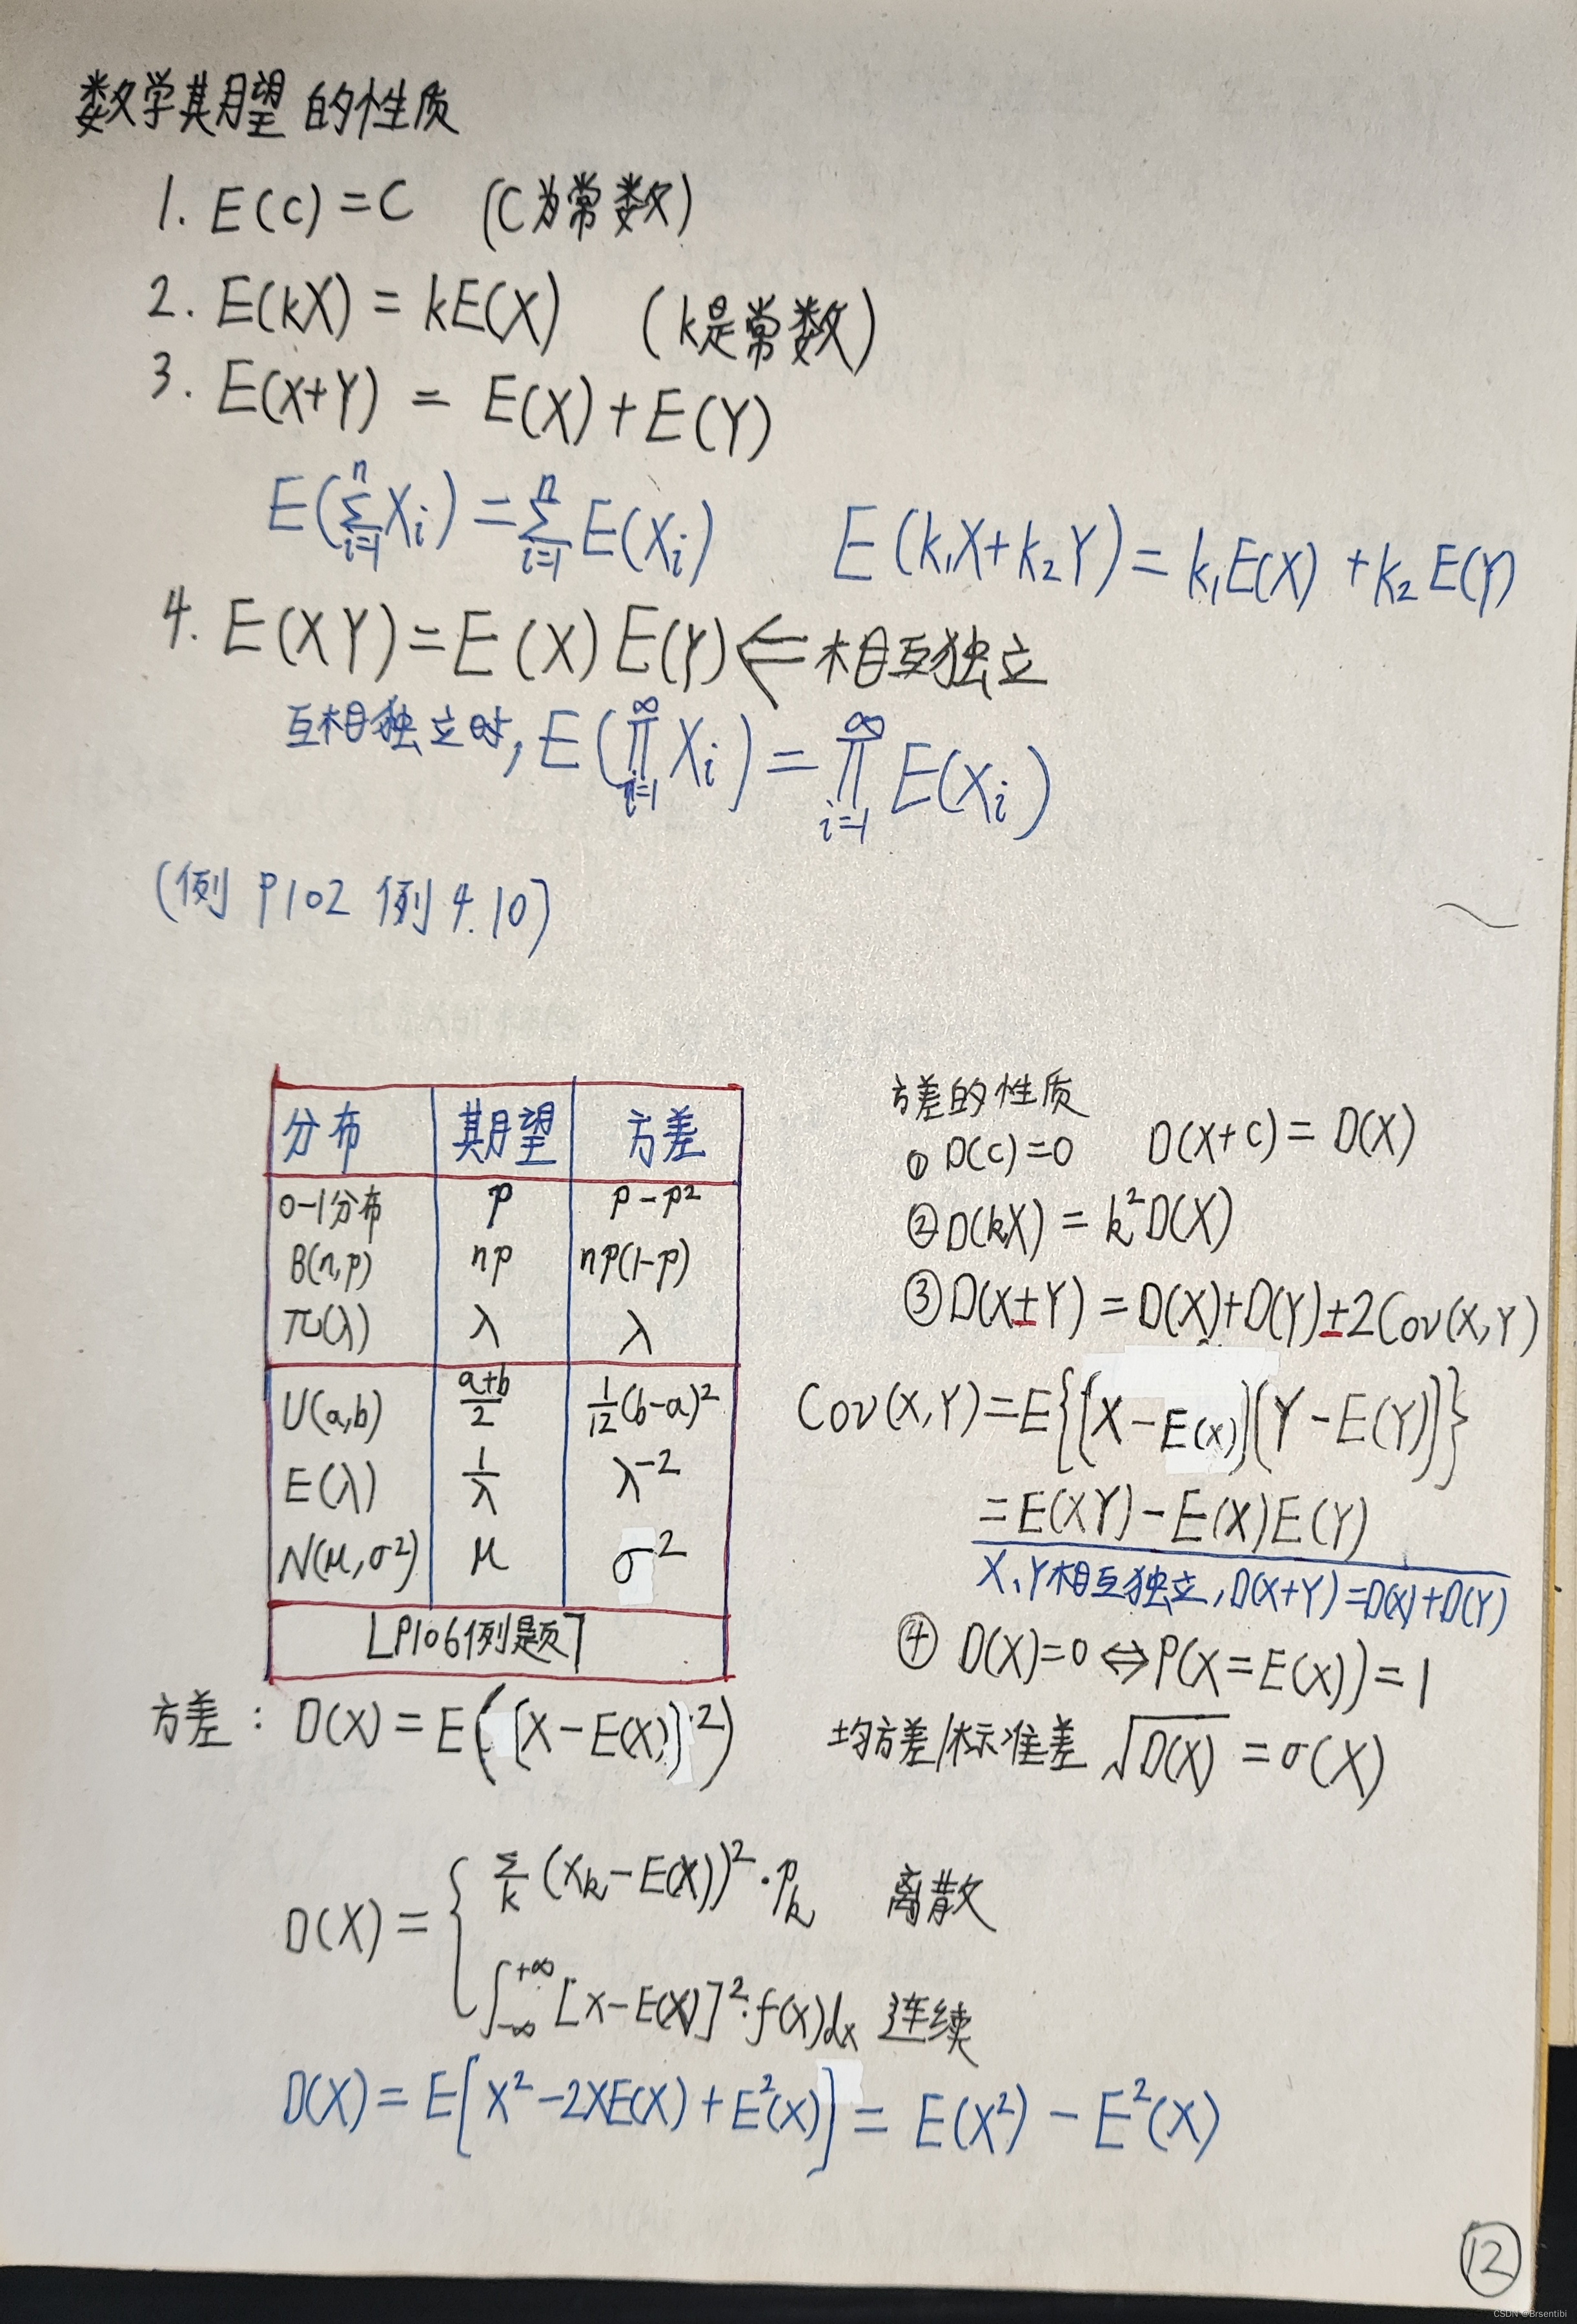 数学期望的性质
1. E(c)=C (C为常数)
2. E(kX) = kE(X) (k是常数)
3. E(X+Y) = E(X)+E(Y)
E(∑_{i=1}^{n} X_i) = ∑_{i=1}^{n} E(X_i) E(k₁X+k₂Y) = k₁E(X) + k₂E(Y)
4. E(XY)=E(X)E(Y) ⇐ 相互独立
互相独立时, E(∏_{i=1}^{∞} X_i) = ∏_{i=1}^{∞} E(X_i)
(例 P102 例4.10)
分布 期望 方差
0-1分布 p p-p²
B(n,p) np np(1-p)
π(λ) λ λ
U(a,b) a+b/2 1/12(b-a)²
E(λ) 1/λ λ⁻²
N(μ,σ²) μ σ²
[P106例题]
方差的性质
① D(c)=0 D(X+C)=D(X)
② D(kX) = k²D(X)
③ D(X±Y) = D(X)+D(Y)±2Cov(X,Y)
Cov(X,Y)=E{[X-E(X)][Y-E(Y)]}
=E(XY)-E(X)E(Y)
X、Y相互独立,D(X+Y)=D(X)+D(Y)
④ D(X)=0 ⇔ P(X=E(X))=1
方差: D(X) = E([X-E(X)]²)
均方差/标准差 √D(X) = σ(X)
D(X) = { ∑_k (x_k-E(X))²·p_k 离散
∫_{-∞}^{+∞} [x-E(X)]²·f(x)dx 连续
D(X) = E[X²-2XE(X)+E²(X)] = E(X²) - E²(X)
12
CSDN @Brsentibi